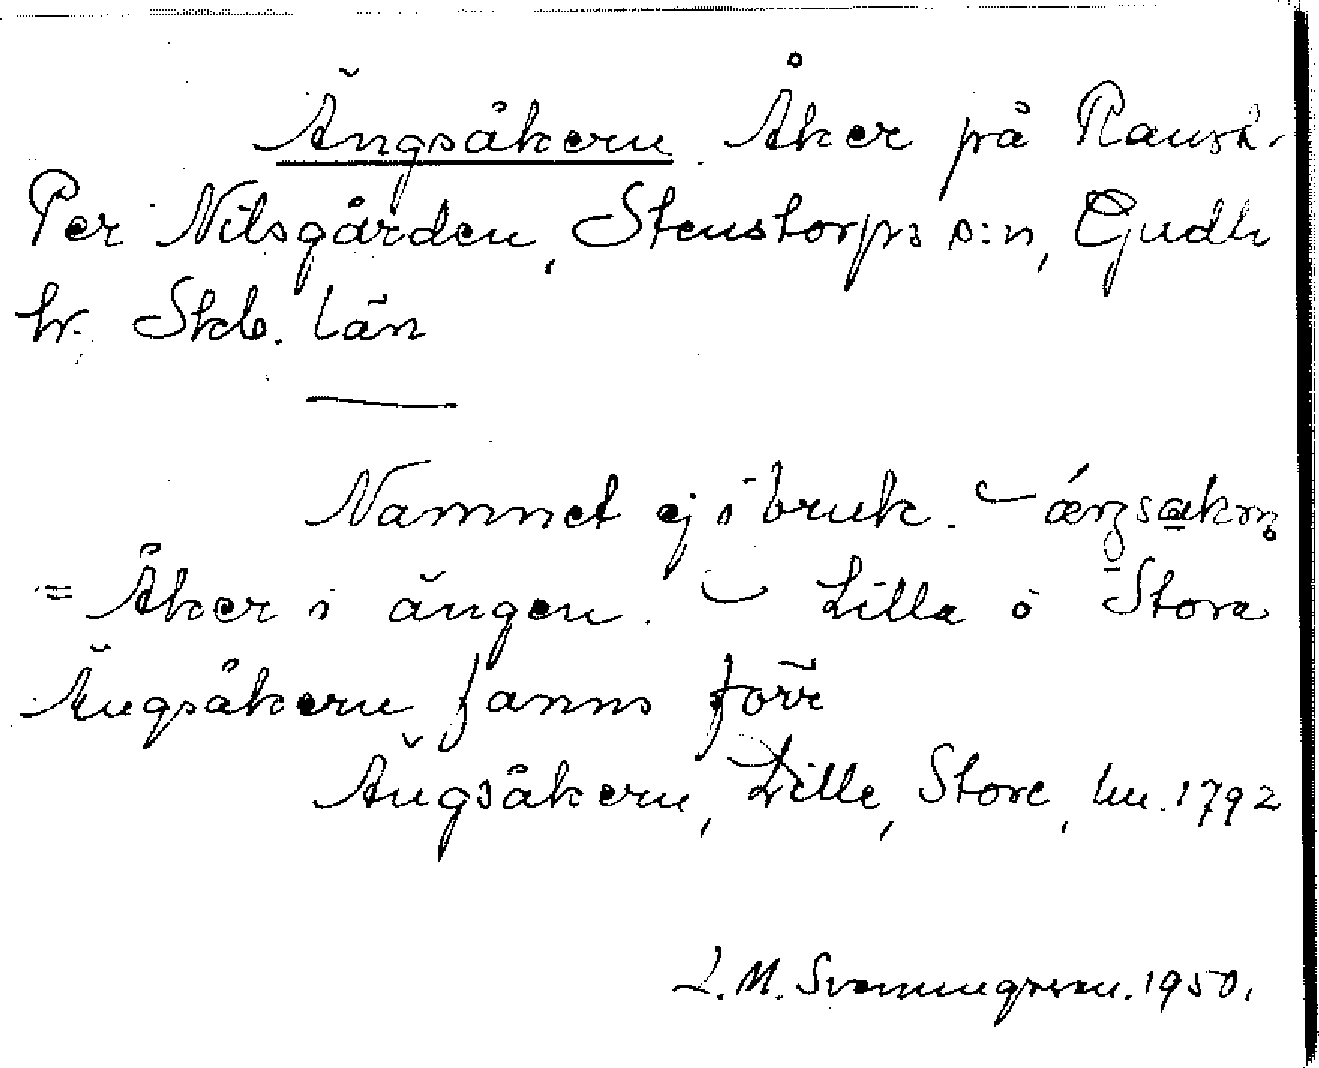 Ängsåkern. Åker på Ransk.
Per Nilsgården, Stenstorps s:n, Gudh
hr. Skb. län
Namnet ej i bruk. –
= Åker i ängen. – Lilla o Stora
Ängsåkern fanns förr
Ängsåkern, Lille, Store, hm. 1792
L. M. Svenungsson. 1950.